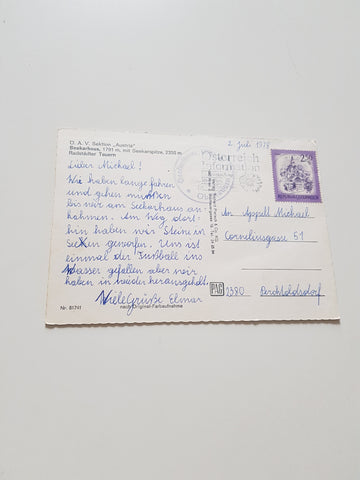 Ö. A. V. Sektion „Austria"
Seekarhaus, 1791 m, mit Seekarspitze, 2350 m
Radstädter Tauern
Lieber Michael!
Wir haben lange fahren
und gehen müssen
bis wir am Seekarhaus an-
kahmen. Am Weg dort-
hin haben wir Steine in
Seen geworfen. Uns ist
einmal der Fußball ins
Wasser gefallen aber wir
haben in wieder herausgeholt.
Viele Grüße Elmar
Nr. 81741
nach Original-Farbaufnahme
2. Juli 1978
Österreich
Information
2.50
REPUBLIK ÖSTERREICH
An Appell Michael
Corneliusgasse 51
PAG
2380 Perchtoldsdorf